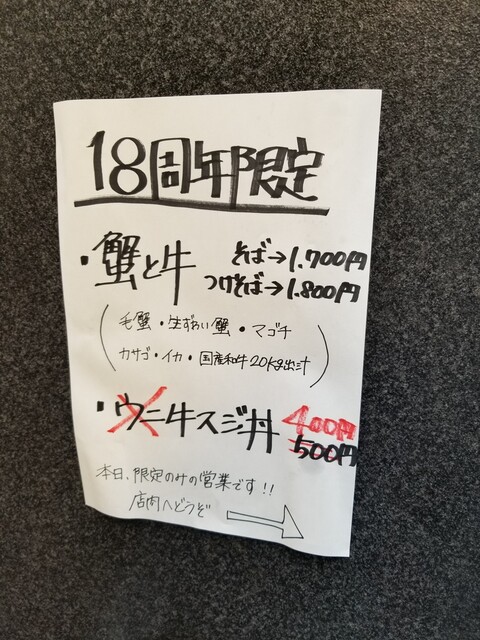 18周年限定
・蟹と牛
そば→1.700円
つけそば→1.800円
(毛蟹・生ずわい蟹・マゴチ
カサゴ・イカ・国産和牛20kg出汁)
・ウニ牛スジ丼 400円
500円
本日、限定のみの営業です!!
店内へどうぞ